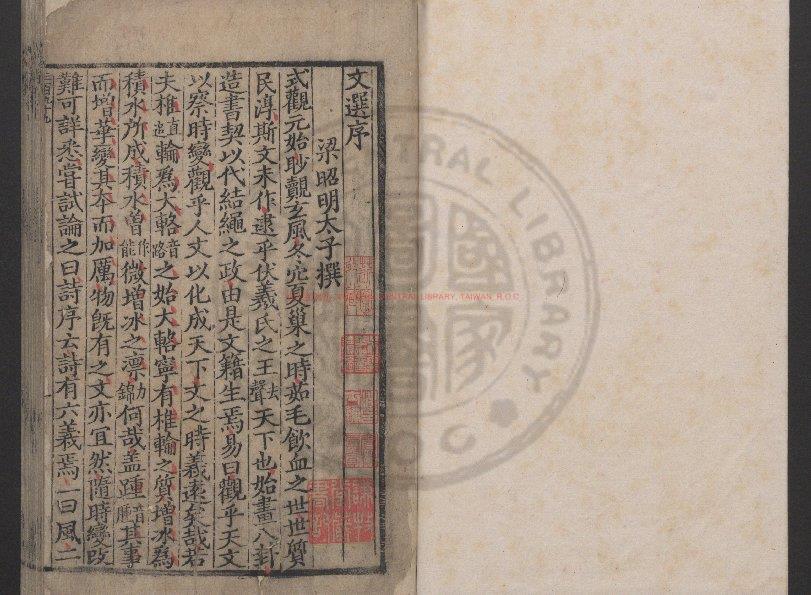 文選序
梁昭明太子撰
式觀元始眇覿玄風冬穴夏巢之時茹毛飲血之世世質
民淳斯文未作逮乎伏羲氏之王去聲天下也始畫八卦
造書契以代結繩之政由是文籍生焉易曰觀乎天文
以察時變觀乎人文以化成天下文之時義遠矣哉若
夫椎直追輪爲大輅音路之始大輅寧有椎輪之質增冰爲
積水所成積水曾作能微增冰之凛力錦何哉盖踵音腫其事
而增華變其本而加厲物旣有之文亦宜然隨時變改
難可詳悉嘗試論之曰詩序云詩有六義焉一曰風二
CENTRAL LIBRARY, TAIWAN, R.O.C